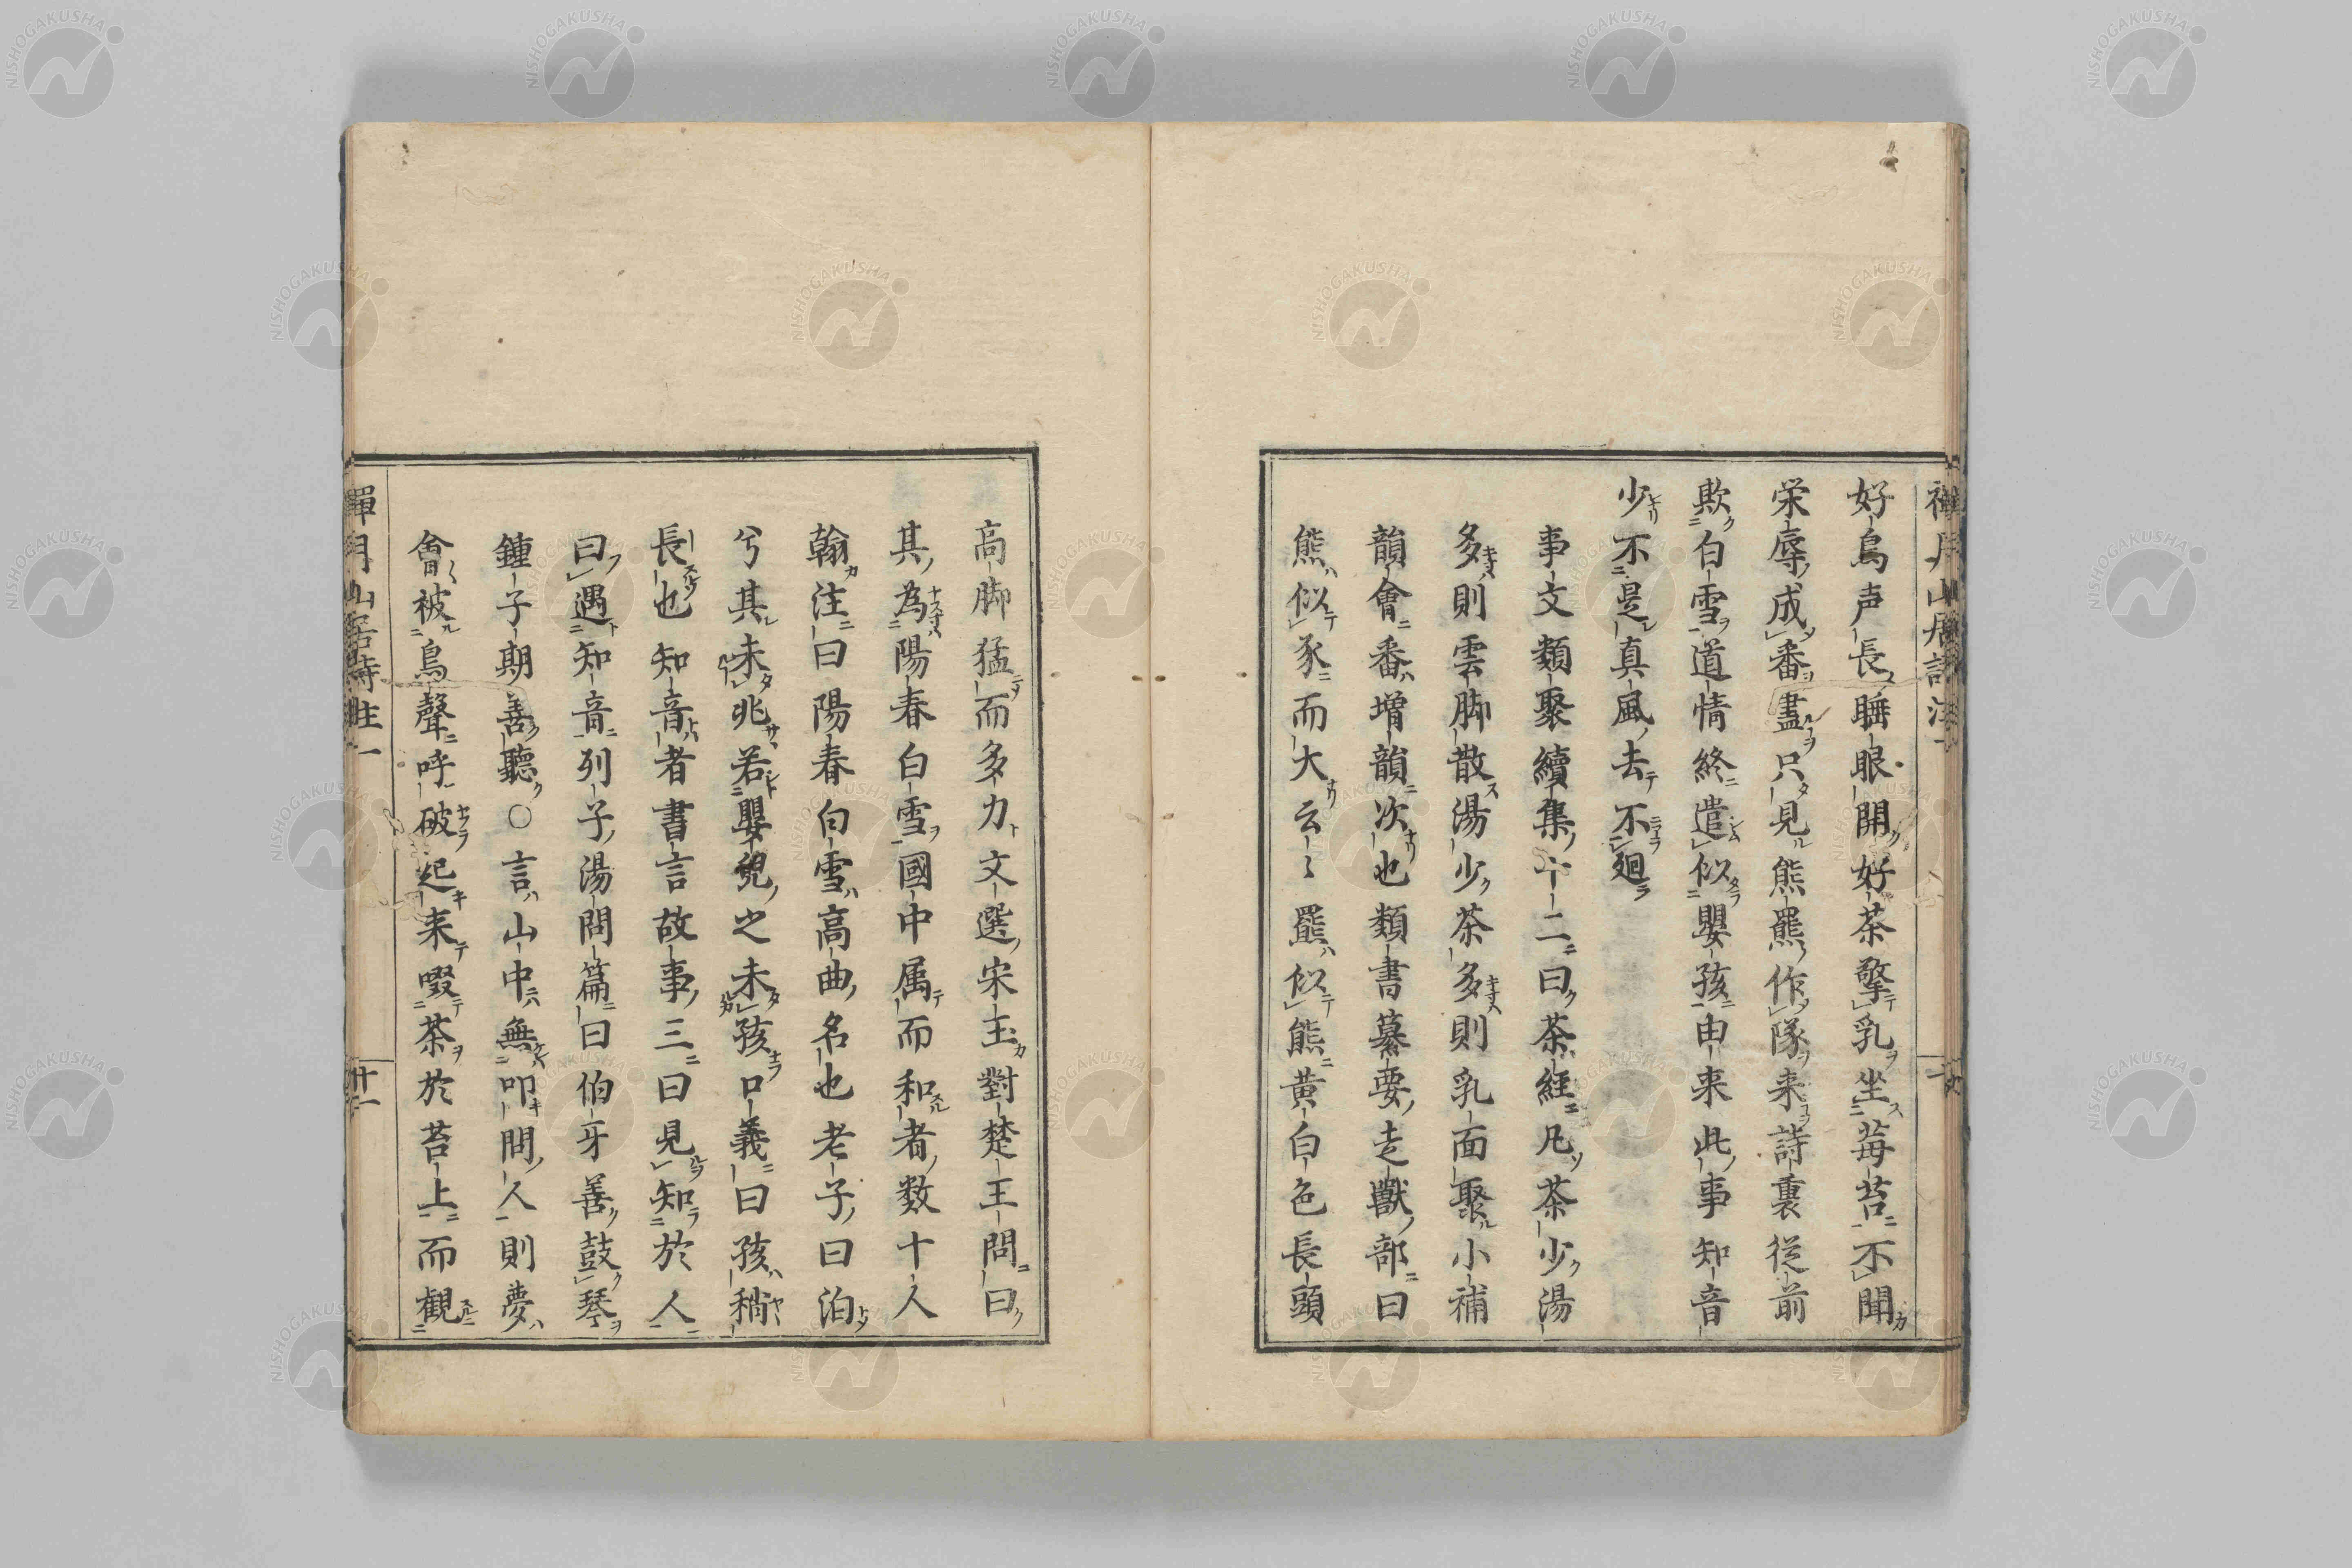 好鳥声長睡眼開好茶擎乳坐莓苔不聞
栄辱成番盡只見熊羆作隊来詩裏従前
欺白雪道情終遣似嬰孩由来此事知音
少不是真風去不廻
事文類聚續集十二曰茶経凡茶少湯
多則雲脚散湯少茶多則乳面聚小補
韻會番増韻次也類書纂要走獣部曰
熊似豕而大云〻羆似熊黄白色長頭
高脚猛而多力文選宋玉對楚王問曰
其為陽春白雪國中属而和者数十人
翰注曰陽春白雪高曲名也老子曰泊
兮其未兆若嬰兒之未孩口義曰孩稍
長也知音者書言故事三曰見知於人
曰遇知音列子湯問篇曰伯牙善鼓琴
鍾子期善聽○言山中無叩問人則夢
會被鳥聲呼破起来啜茶於苔上而観
禅月山居詩註一
廿一
NISHOGAKUSHA